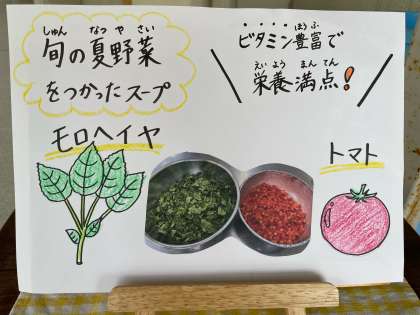 しゅん なつ や さい
旬の夏野菜
をつかったスープ
ほう ふ
ビタミン豊富で
えい よう まん てん
栄養満点!
モロヘイヤ
トマト